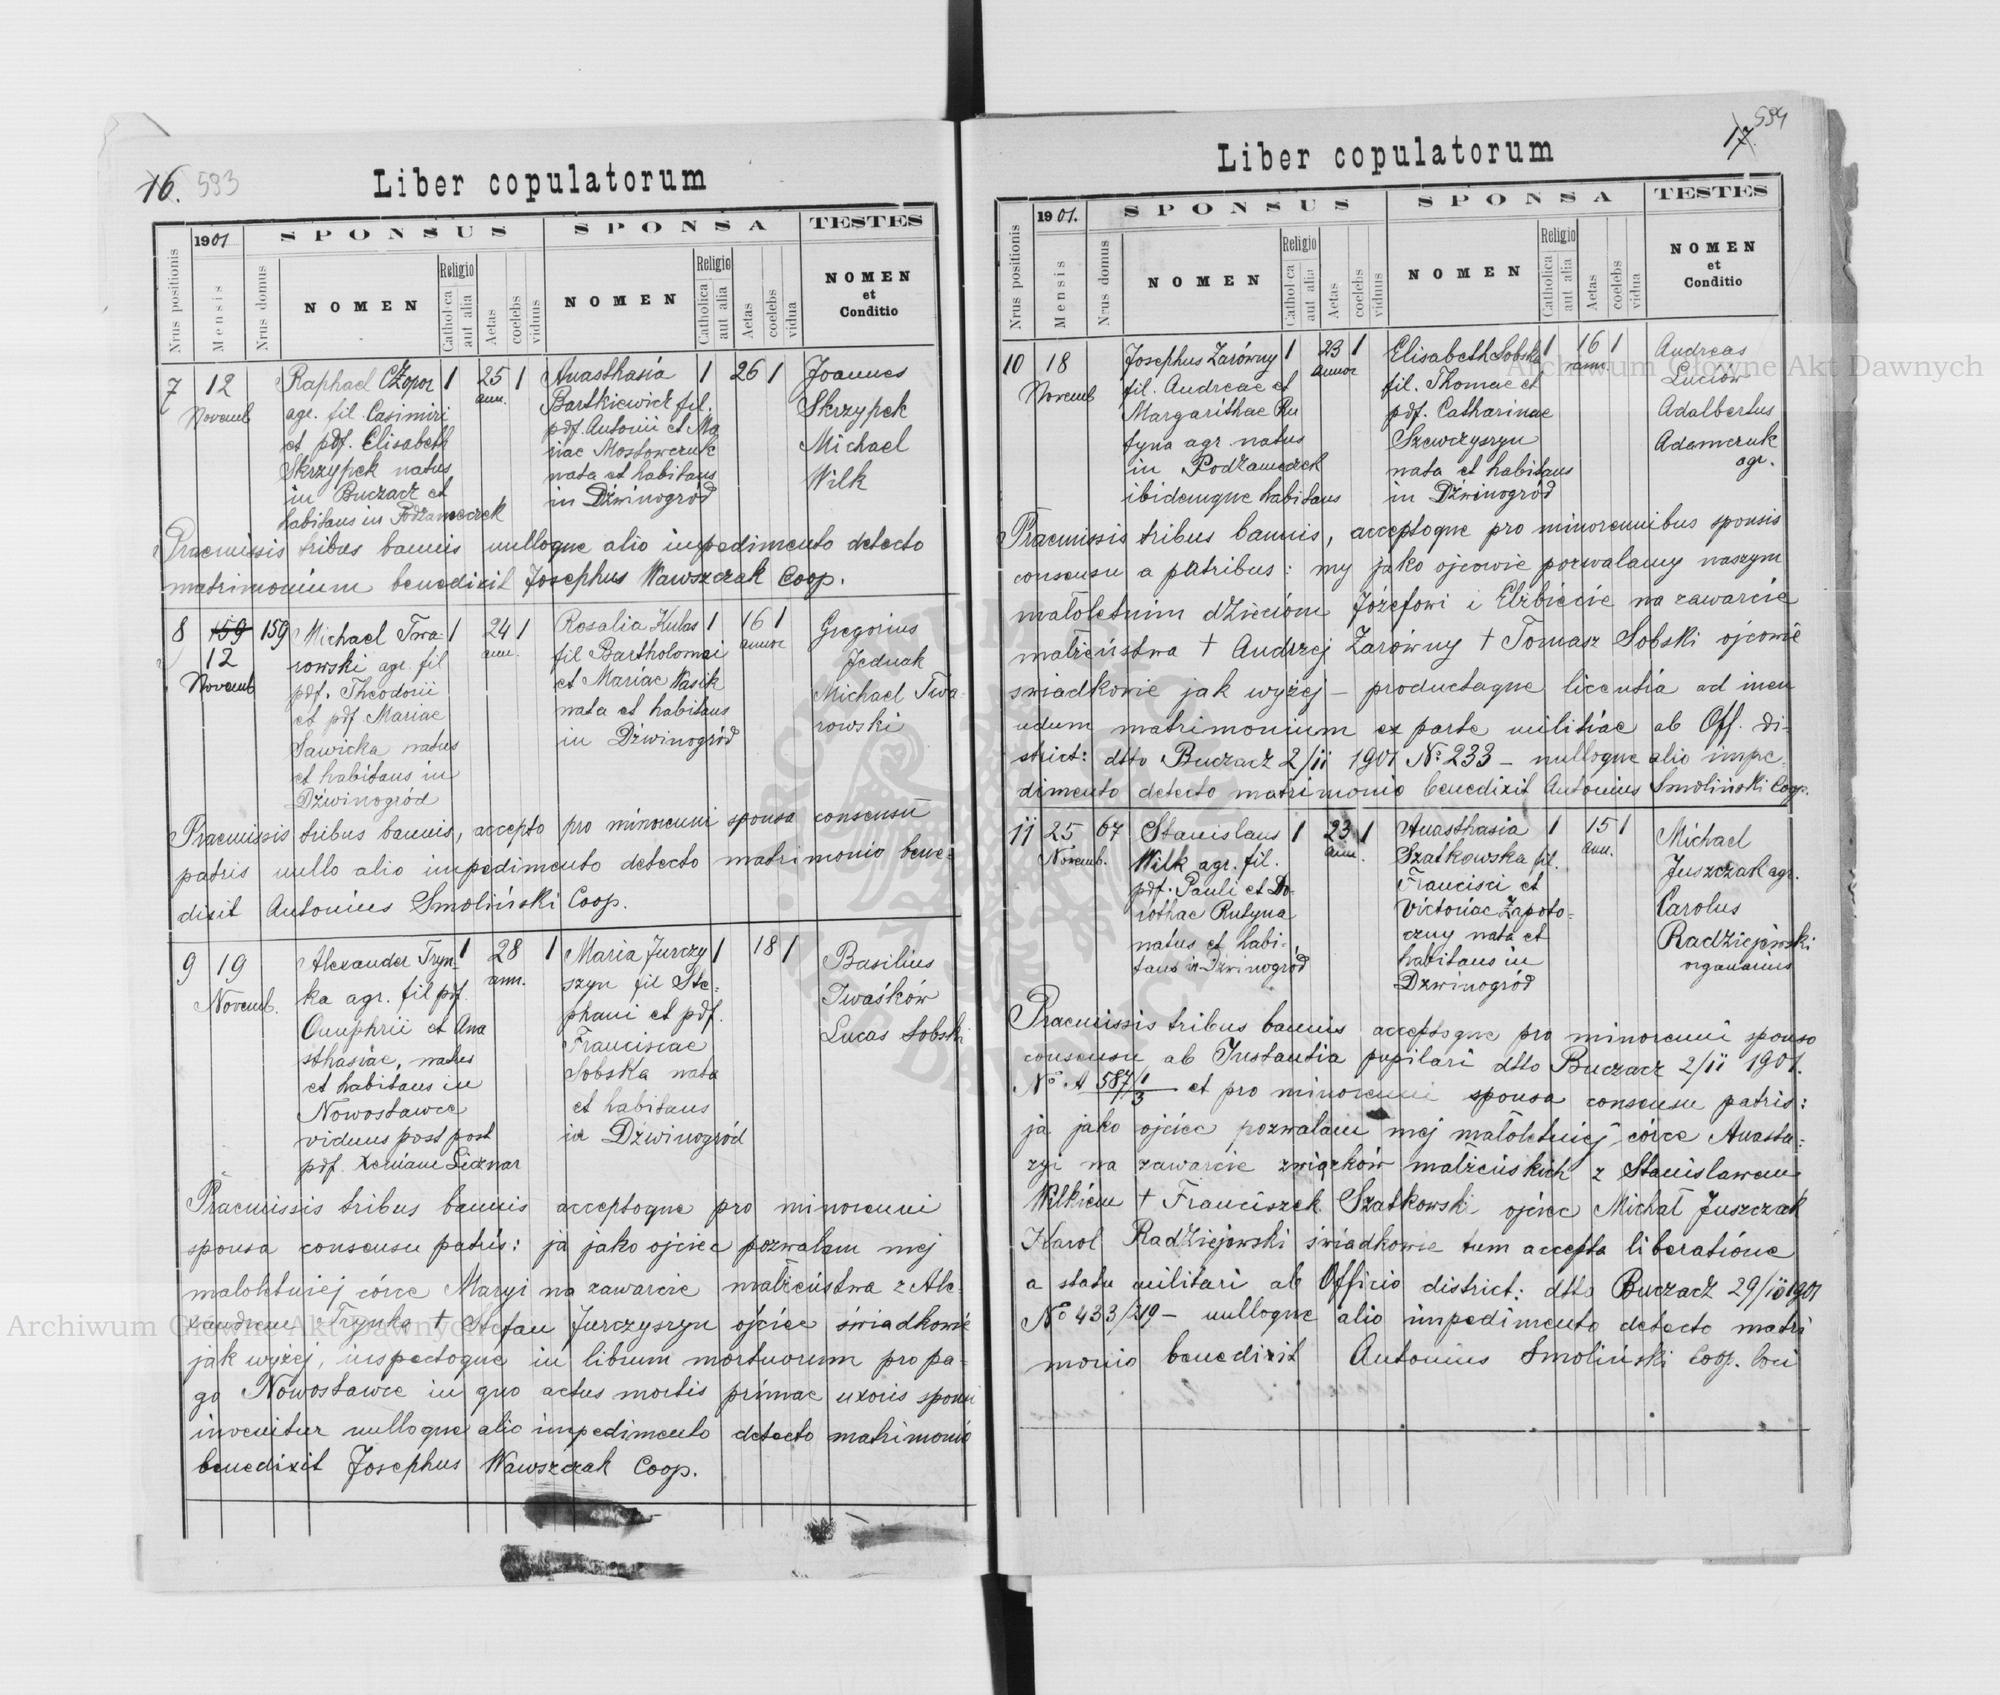 16. 593
Liber copulatorum
Nrus positionis
1901
Mensis
SPONSUS
Nrus domus
NOMEN
Religio
Catholica aut alia
Aetas
coelebs
viduus
SPONSA
NOMEN
Religio
Catholica aut alia
Aetas
coelebs
vidua
TESTES
NOMEN
et
Conditio
7
12
Novemb
Raphael Czopor
agr. fil. Casimiri
et pdf. Elisabeth
Skrzypek natus
in Buczacz et
habitans in Podzameczek
1
25
ann.
1
Anasthasia
Bartkiewicz fil.
pdf. Antonii et Ma
riae Mostowczuk
nata et habitans
in Dźwinogród
1
26
1
Joannes
Skrzypek
Michael
Wilk
Praemissis tribus bannis nulloque alio impedimento detecto
matrimonium benedixit Josephus Wawszczak Coop.
8
159
12
Novemb
159
Michael Twa-
rowski agr. fil
pdf. Theodorii
et pdf Mariae
Sawicka natus
et habitans in
Dźwinogród
1
24
ann.
1
Rosalia Kulas
fil Bartholomei
et Mariae Wasik
nata et habitans
in Dźwinogród
1
16
annor
1
Gregorius
Jednak
Michael Twa-
rowski
Praemissis tribus bannis, accepto pro minorenni sponsa consensu
patris nullo alio impedimento detecto matrimonio bene-
dixit Antonius Smoliński Coop.
9
19
Novemb.
Alexander Tryn-
ka agr. fil pdf.
Onuphrii et Ana
sthasiae, natus
et habitans in
Nowostawce
viduus post post
pdf. Xeniam Licznar
1
28
ann.
1
Maria Jurczy
szyn fil Ste-
phani et pdf.
Franciscae
Sobska nata
et habitans
in Dźwinogród
1
18
1
Basilius
Iwaśków
Lucas Sobski
Praemissis tribus bannis acceptoque pro minorenni
sponsa consensu patris: ja jako ojciec pozwalam mej
małoletniej córce Maryi na zawarcie małżeństwa z Ale-
xandrem Trynka + Stefan Jurczyszyn ojciec świadkowie
jak wyżej, inspectoque in librum mortuorum pro pa-
go Nowostawce in quo actus mortis primae uxoris sponsi
invenitur nulloque alio impedimento detecto matrimonio
benedixit Josephus Wawszczak Coop.
17 594
Liber copulatorum
Nrus positionis
1901.
Mensis
SPONSUS
Nrus domus
NOMEN
Religio
Catholica aut alia
Aetas
coelebs
viduus
SPONSA
NOMEN
Religio
Catholica aut alia
Aetas
coelebs
vidua
TESTES
NOMEN
et
Conditio
10
18
Novemb
Josephus Zarówny
fil. Andreae et
Margarithae Ru
tyna agr. natus
in Podzameczek
ibidemque habitans
1
23
annor
1
Elisabeth Sobska
fil. Thomae et
pdf. Catharinae
Szewczyszyn
nata et habitans
in Dźwinogród
1
16
ann.
1
Andreas
Luciów
Adalbertus
Adamczuk
agr.
Praemissis tribus bannis, acceptoque pro minorennibus sponsis
consensu a patribus: my jako ojcowie pozwalamy naszym
małoletnim dzieciom Józefowi i Elżbiecie na zawarcie
małżeństwa + Andrzej Zarówny + Tomasz Sobski ojcowie
świadkowie jak wyżej – productaque licentia ad ineu
ndum matrimonium ex parte militiae ab Off. di-
strict: dtto Buczacz 2/11 1901 No 233 – nulloque alio impe-
dimento detecto matrimonio benedixit Antonius Smoliński Coop.
11
25
Novemb.
67
Stanislaus
Wilk agr. fil.
pdf. Pauli et Do-
rothae Rutyna
natus et habi-
tans in Dźwinogród
1
23
ann.
1
Anasthasia
Szatkowska fil.
Francisci et
Victoriae Zapoto-
czny nata et
habitans in
Dźwinogród
1
15
ann.
1
Michael
Juszczak agr.
Carolus
Radziejewski
organarius
Praemissis tribus bannis acceptoque pro minorenni sponso
consensu ab Instantia pupilari dtto Buczacz 2/11 1901.
No A 587/1/3 et pro minorenni sponsa consensu patris:
ja jako ojciec pozwalam mej małoletniej córce Anasta-
zyi na zawarcie związków małżeńskich z Stanisławem
Wilkiem + Franciszek Szatkowski ojciec Michał Juszczak
Karol Radziejowski świadkowie tum accepta liberatione
a statu militari ab Officio district: dtto Buczacz 29/10 1901
No 433/219 – nulloque alio impedimento detecto matri
monio benedixit Antonius Smoliński Coop. loci
Archiwum Główne Akt Dawnych
Archiwum Główne Akt Dawnych